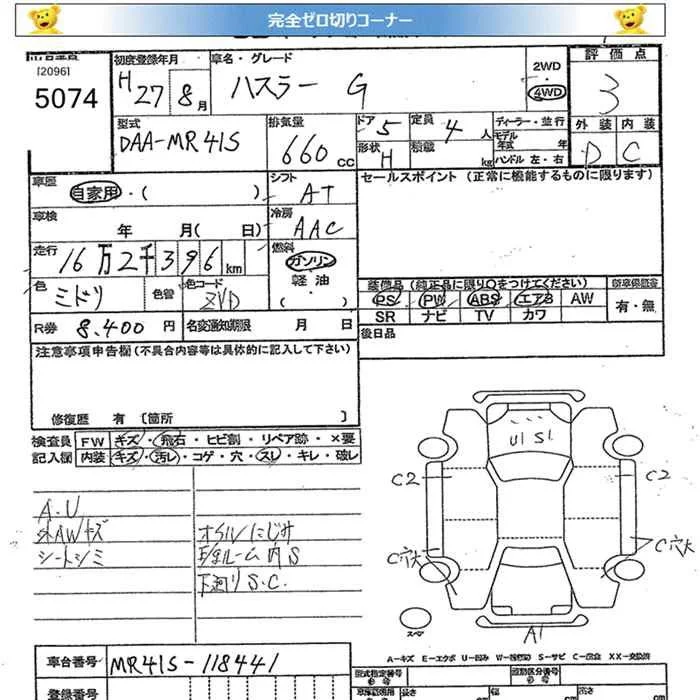 完全ゼロ切りコーナー
[2096]
5074
初度登録年月
H 27年 8月
車名・グレード
ハスラー G
2WD
・
4WD
評価点
3
型式
DAA-MR41S
排気量
660 cc
ドア 5
定員 4 人
形状 H
積載 kg
ディーラー・並行
モデル年式 年
ハンドル 左・右
外装 内装
D C
車歴
自家用・( )
シフト
AT
セールスポイント (正常に機能するものに限ります)
車検
年 月( 日)
冷房
AAC
走行
16万2千396km
燃料
ガソリン
軽油
・( )
色
ミドリ
色替
色コード
ZVD
装備品 (純正品に限り○をつけてください)
PS PW ABS エアB AW
SR ナビ TV カワ
新車保証書
有・無
R券
8,400 円
名変通知期限 月 日
後日品
注意事項申告欄(不具合内容等は具体的に記入して下さい)
修復歴 有 [箇所 ]
検査員 FW キズ・飛石・ヒビ割・リペア跡・×要
記入欄 内装 キズ・汚レ・コゲ・穴・スレ・キレ・破レ
A.U
外AWキズ
シートシミ
オイルにじみ
下廻りS.C.
U1 S1
C2
C2
C穴大
C穴大
スペア
A1
A-キズ E-エクボ U-凹み S-サビ C-腐食 XX-交換済
車台番号
MR41S-118441
登録番号
型式指定番号
類別区分番号
長さ
cm
幅
cm
高さ
cm